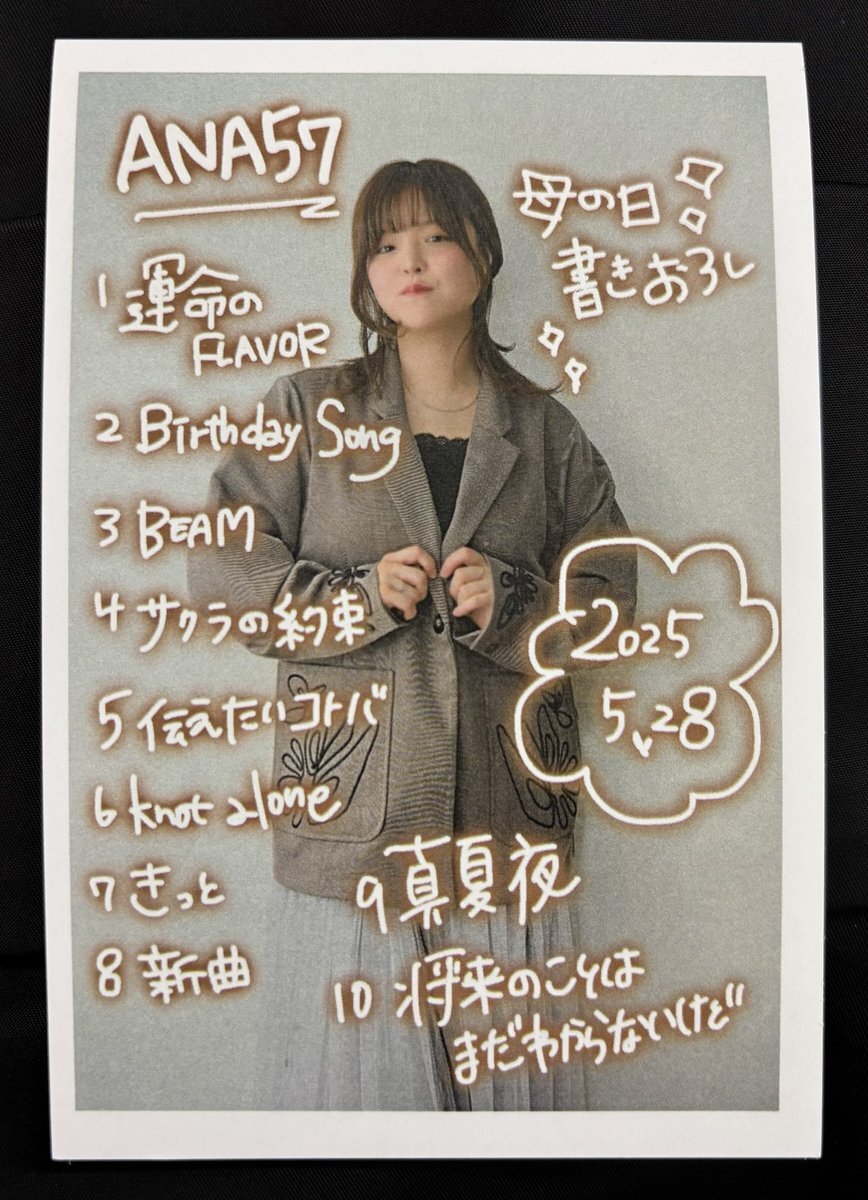 ANA57
母の日
書きおろし
1 運命の
FLAVOR
2 Birthday Song
3 BEAM
4 サクラの約束
5 伝えたいコトバ
6 knot alone
7 きっと
8 新曲
9 真夏夜
10 将来のことは
まだわからないけど
2025
5.28